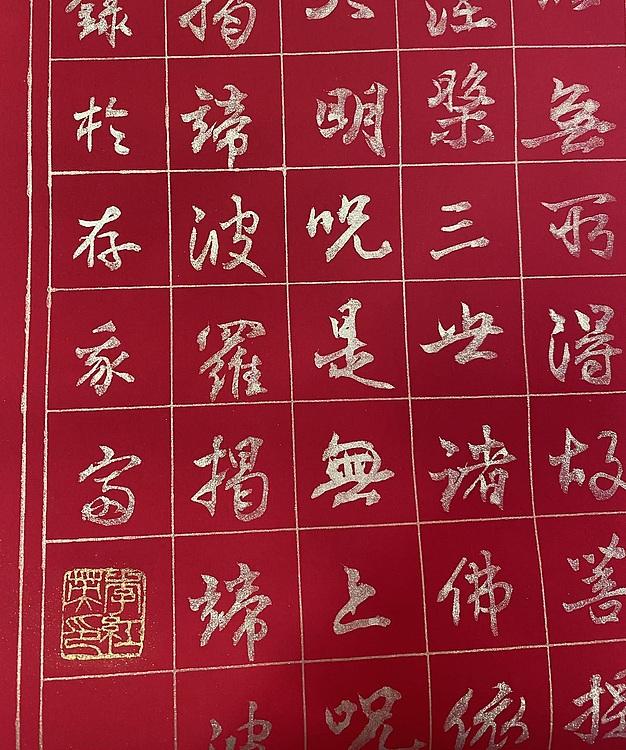 無所得故菩提
涅槃三世諸佛依
大明呪是無上呪
揭諦波羅揭諦波
錄於存
李紅英印